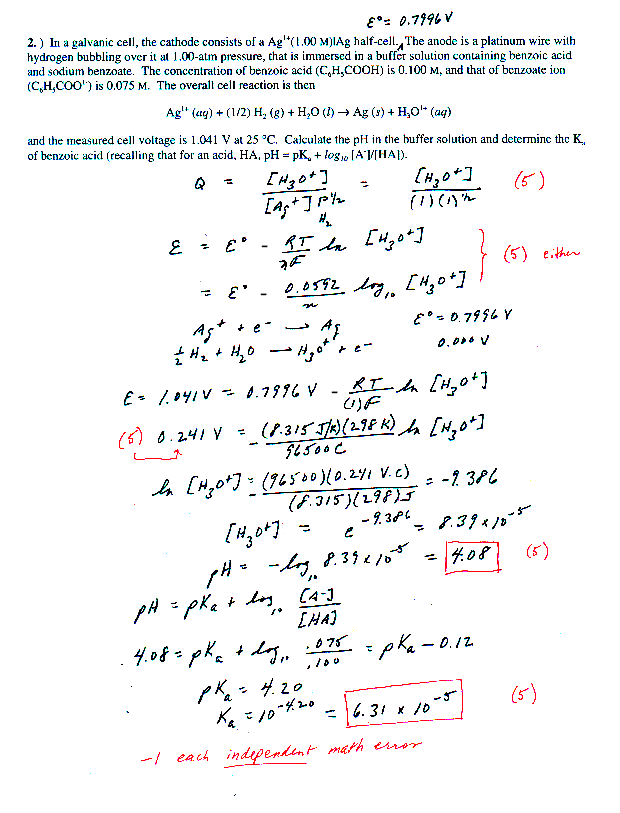 ℰ° = 0.7996 V
2.) In a galvanic cell, the cathode consists of a Ag¹⁺(1.00 M)|Ag half-cell. The anode is a platinum wire with
hydrogen bubbling over it at 1.00-atm pressure, that is immersed in a buffer solution containing benzoic acid
and sodium benzoate. The concentration of benzoic acid (C₆H₅COOH) is 0.100 M, and that of benzoate ion
(C₆H₅COO¹⁻) is 0.075 M. The overall cell reaction is then
Ag¹⁺ (aq) + (1/2) H₂ (g) + H₂O (l) → Ag (s) + H₃O¹⁺ (aq)
and the measured cell voltage is 1.041 V at 25 °C. Calculate the pH in the buffer solution and determine the Kₐ
of benzoic acid (recalling that for an acid, HA, pH = pKₐ + log₁₀ [A⁻]/[HA]).
Q = [H₃O⁺] / [Ag⁺] P^½ H₂ = [H₃O⁺] / (1)(1)^½ (5)
ℰ = ℰ° - RT/nF ln [H₃O⁺]
(5) either
= ℰ° - 0.0592/n log₁₀ [H₃O⁺]
Ag⁺ + e⁻ → Ag ℰ° = 0.7996 V
½ H₂ + H₂O → H₃O⁺ + e⁻ 0.000 V
ℰ = 1.041 V = 0.7996 V - RT/(1)F ln [H₃O⁺]
(5) 0.241 V = - (8.315 J/K)(298 K)/96500 C ln [H₃O⁺]
ln [H₃O⁺] = - (96500)(0.241 V·C)/(8.315)(298) J = -9.386
[H₃O⁺] = e^-9.386 = 8.39 x 10⁻⁵
pH = -log₁₀ 8.39 x 10⁻⁵ = 4.08 (5)
pH = pKₐ + log₁₀ [A-]/[HA]
4.08 = pKₐ + log₁₀ .075/.100 = pKₐ - 0.12
pKₐ = 4.20
Kₐ = 10^-4.20 = 6.31 x 10⁻⁵ (5)
-1 each independent math error